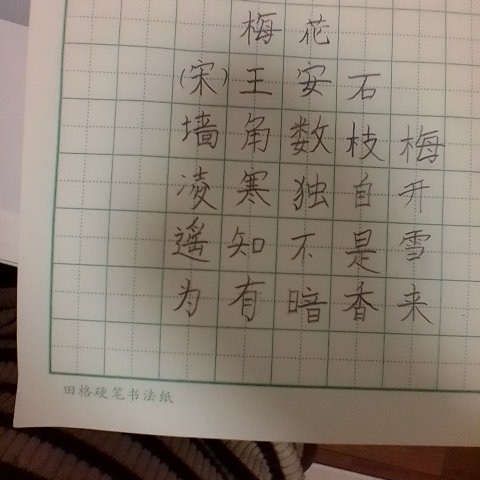 梅花
(宋)王安石
墙角数枝梅
凌寒独自开
遥知不是雪
为有暗香来
田格硬笔书法纸